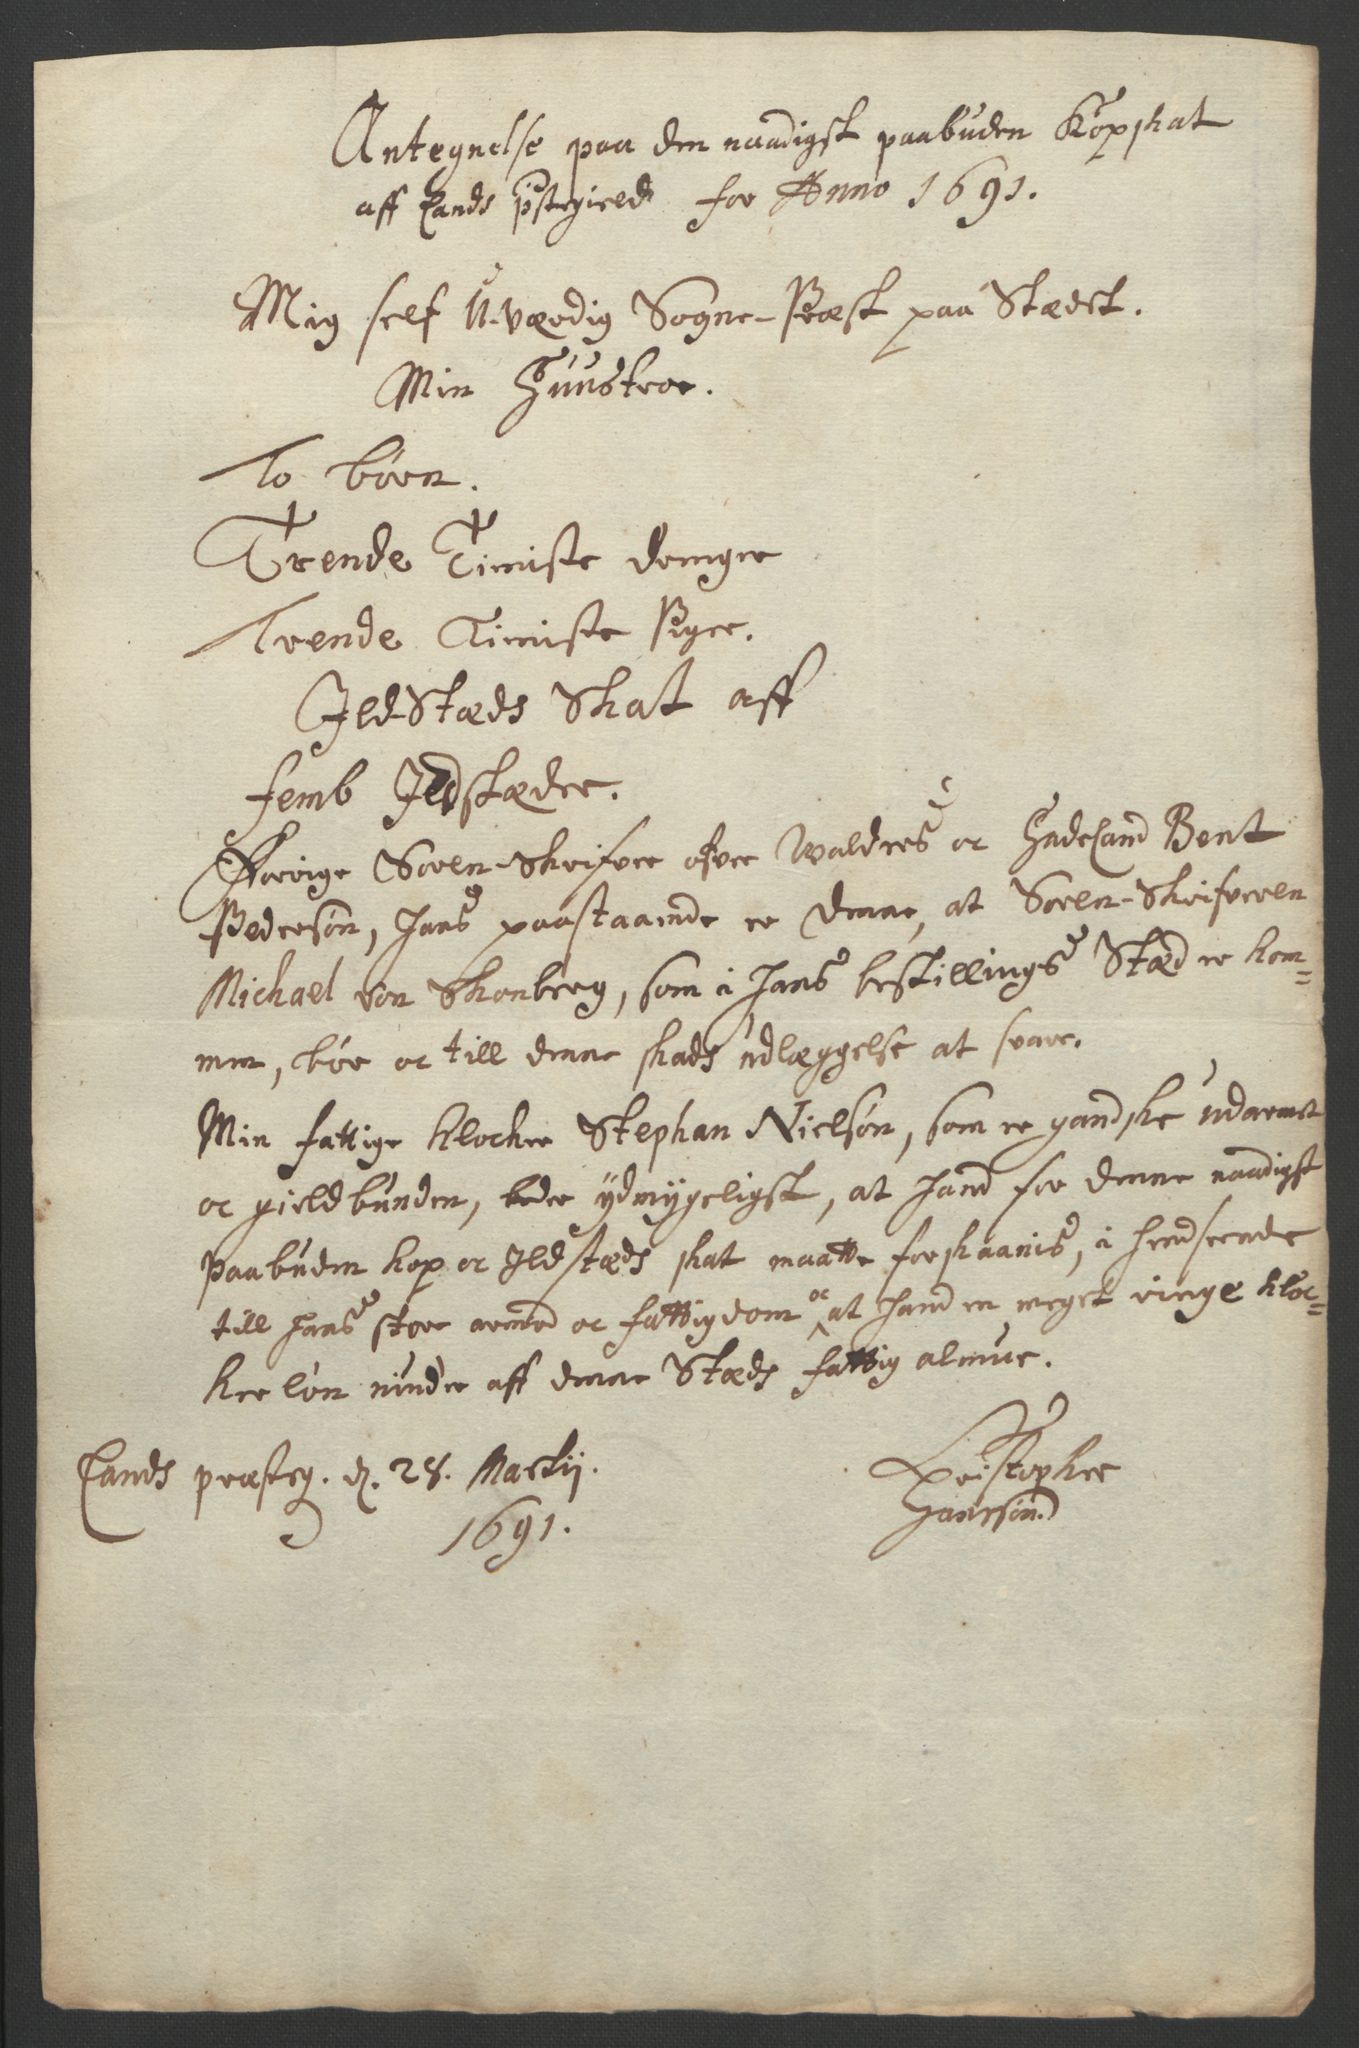 Antegnelse paa den naadigst paabuden Kopskat
aff Lands pstegield for Anno 1691.
Mig self U-værdig Sogne-Præst paa Stædet.
Min Hüüstroe.
To börn.
Trende Tieniste drenger
Trende Tieniste Piger.
Ild-Stæds Skat aff
femb Ildstæder.
Forrige Soren-Skrifver ofver Waldres oc Hadeland Bent
Pedersön, hans paastaaende er denne, at Soren-Skrifveren
Michael von Skonberg, som i hans bestillings Stæd er kom-
men, bör oc till denne skads udlæggelse at svare.
Min fattige klocker Stephan Nielsön, som er gandske udarmet
oc gieldbunden, beder ydmygeligst, at hand for denne naadigst
paabuden kop oc Ildstæds skat maatte forskaanis, i henseende
till hans store armod oc fattigdom oc at hand en meget ringe kloc-
ker lön nÿder aff denne Stæds fattig almue.
Lands præsteg. d. 28. Martij.
1691.
Christopher
Hansön.